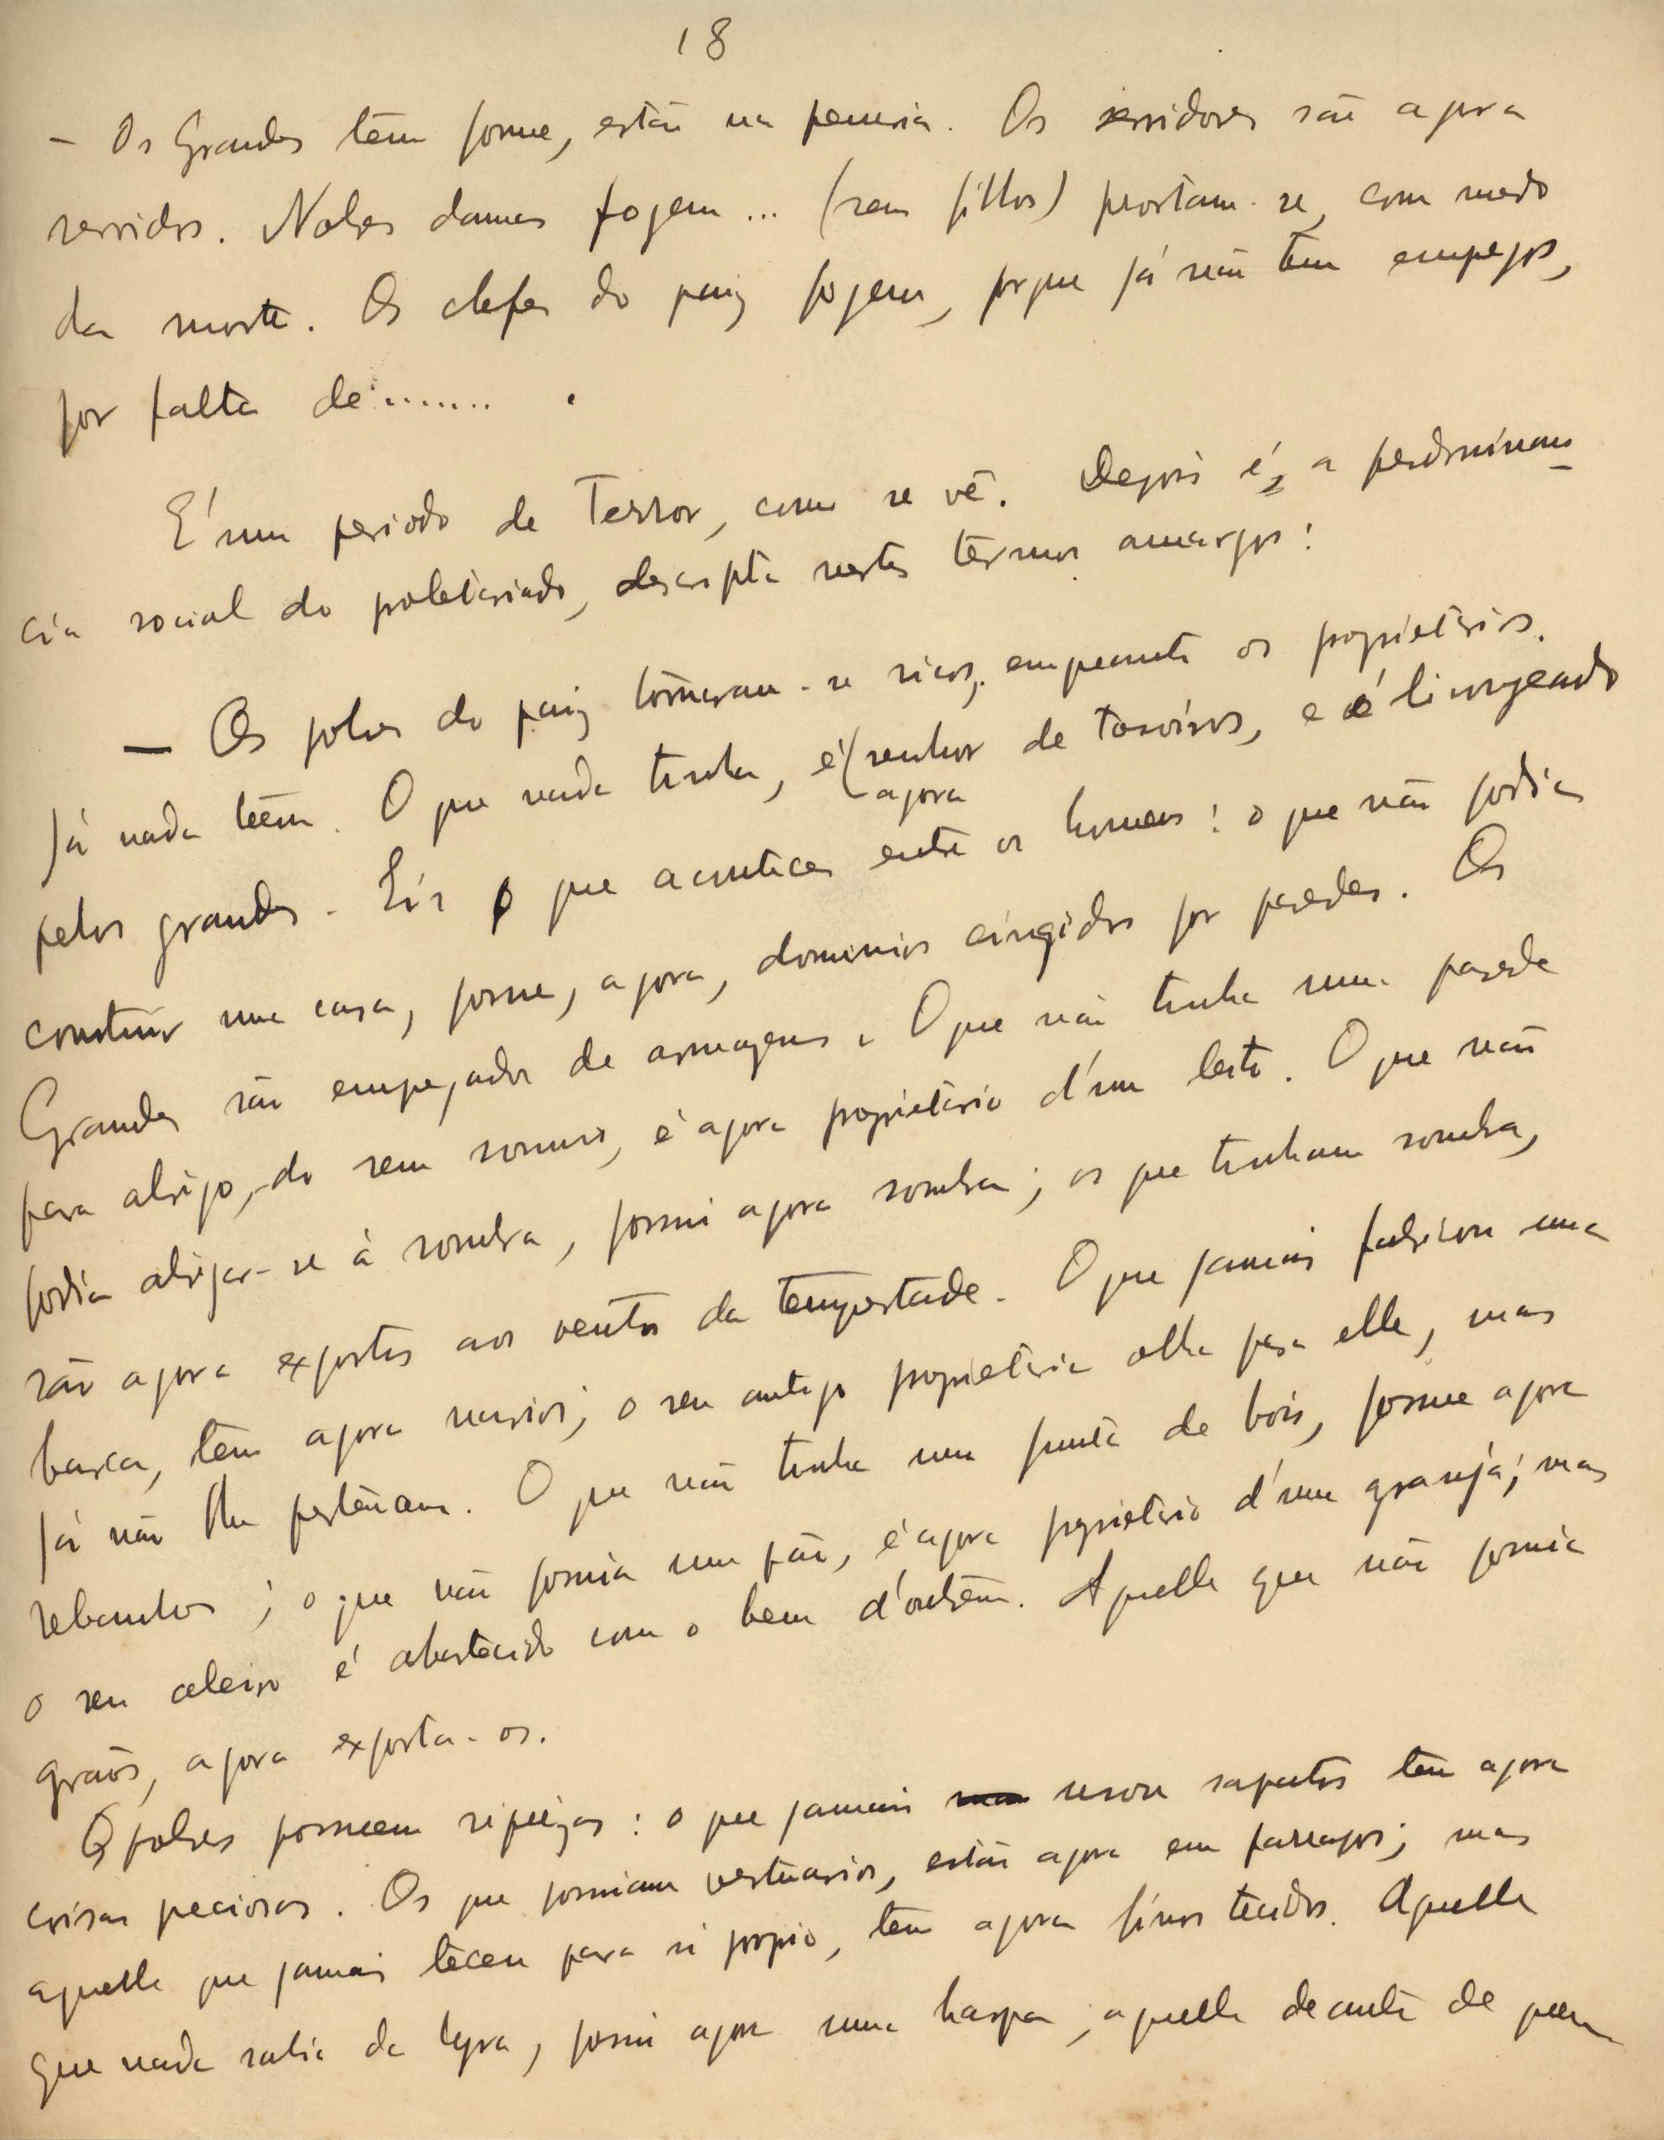 18
— Os Grandes têm fome, estão na penuria. Os servidores são agora
servidos. Nobres damas fogem... (seus filhos) prostam-se, com medo
da morte. Os chefes do paiz fogem, porque já não têm empregos,
por falta de....... .
É um periodo de Terror, como se vê. Depois é, a predominan-
cia social do proletariado, descripta nestes têrmos amargos:
— Os pobres do paiz tornaram-se ricos, emquanto os proprietarios
já nada teem. O que nada tinha, é (senhor de tesoiros, e é lisongeado
agora
pelos grandes. Eis o que acontece entre os homens: o que não podia
construir uma casa, possue, agora, dominios cingidos por paredes. Os
Grandes são empregados de armazens. O que não tinha uma parede
para abrigo, do seu somno, é agora proprietario d'um leito. O que não
podia abrigar-se á sombra, possui agora sombra; os que tinham sombra,
são agora expostos aos ventos da tempestade. O que jamais fabricou uma
barca, têm agora navios; o seu antigo proprietario olha para elle, mas
já não lhe pertencem. O que não tinha uma junta de bois, possue agora
rebanhos; o que não possuia um pão, é agora proprietario d'uma granja; mas
o seu celeiro é abastecido com o bem d'outrem. Aquelle que não possuia
grãos, agora exporta-os.
Os pobres possuem riquezas: o que jamais usou sapatos tem agora
coisas preciosas. Os que possuiam vestuarios, estão agora em farrapos; mas
aquelle que jamais teceu para si proprio, tem agora finos tecidos. Aquelle
que nada sabia da lyra, possui agora uma harpa, aquelle deante de quem